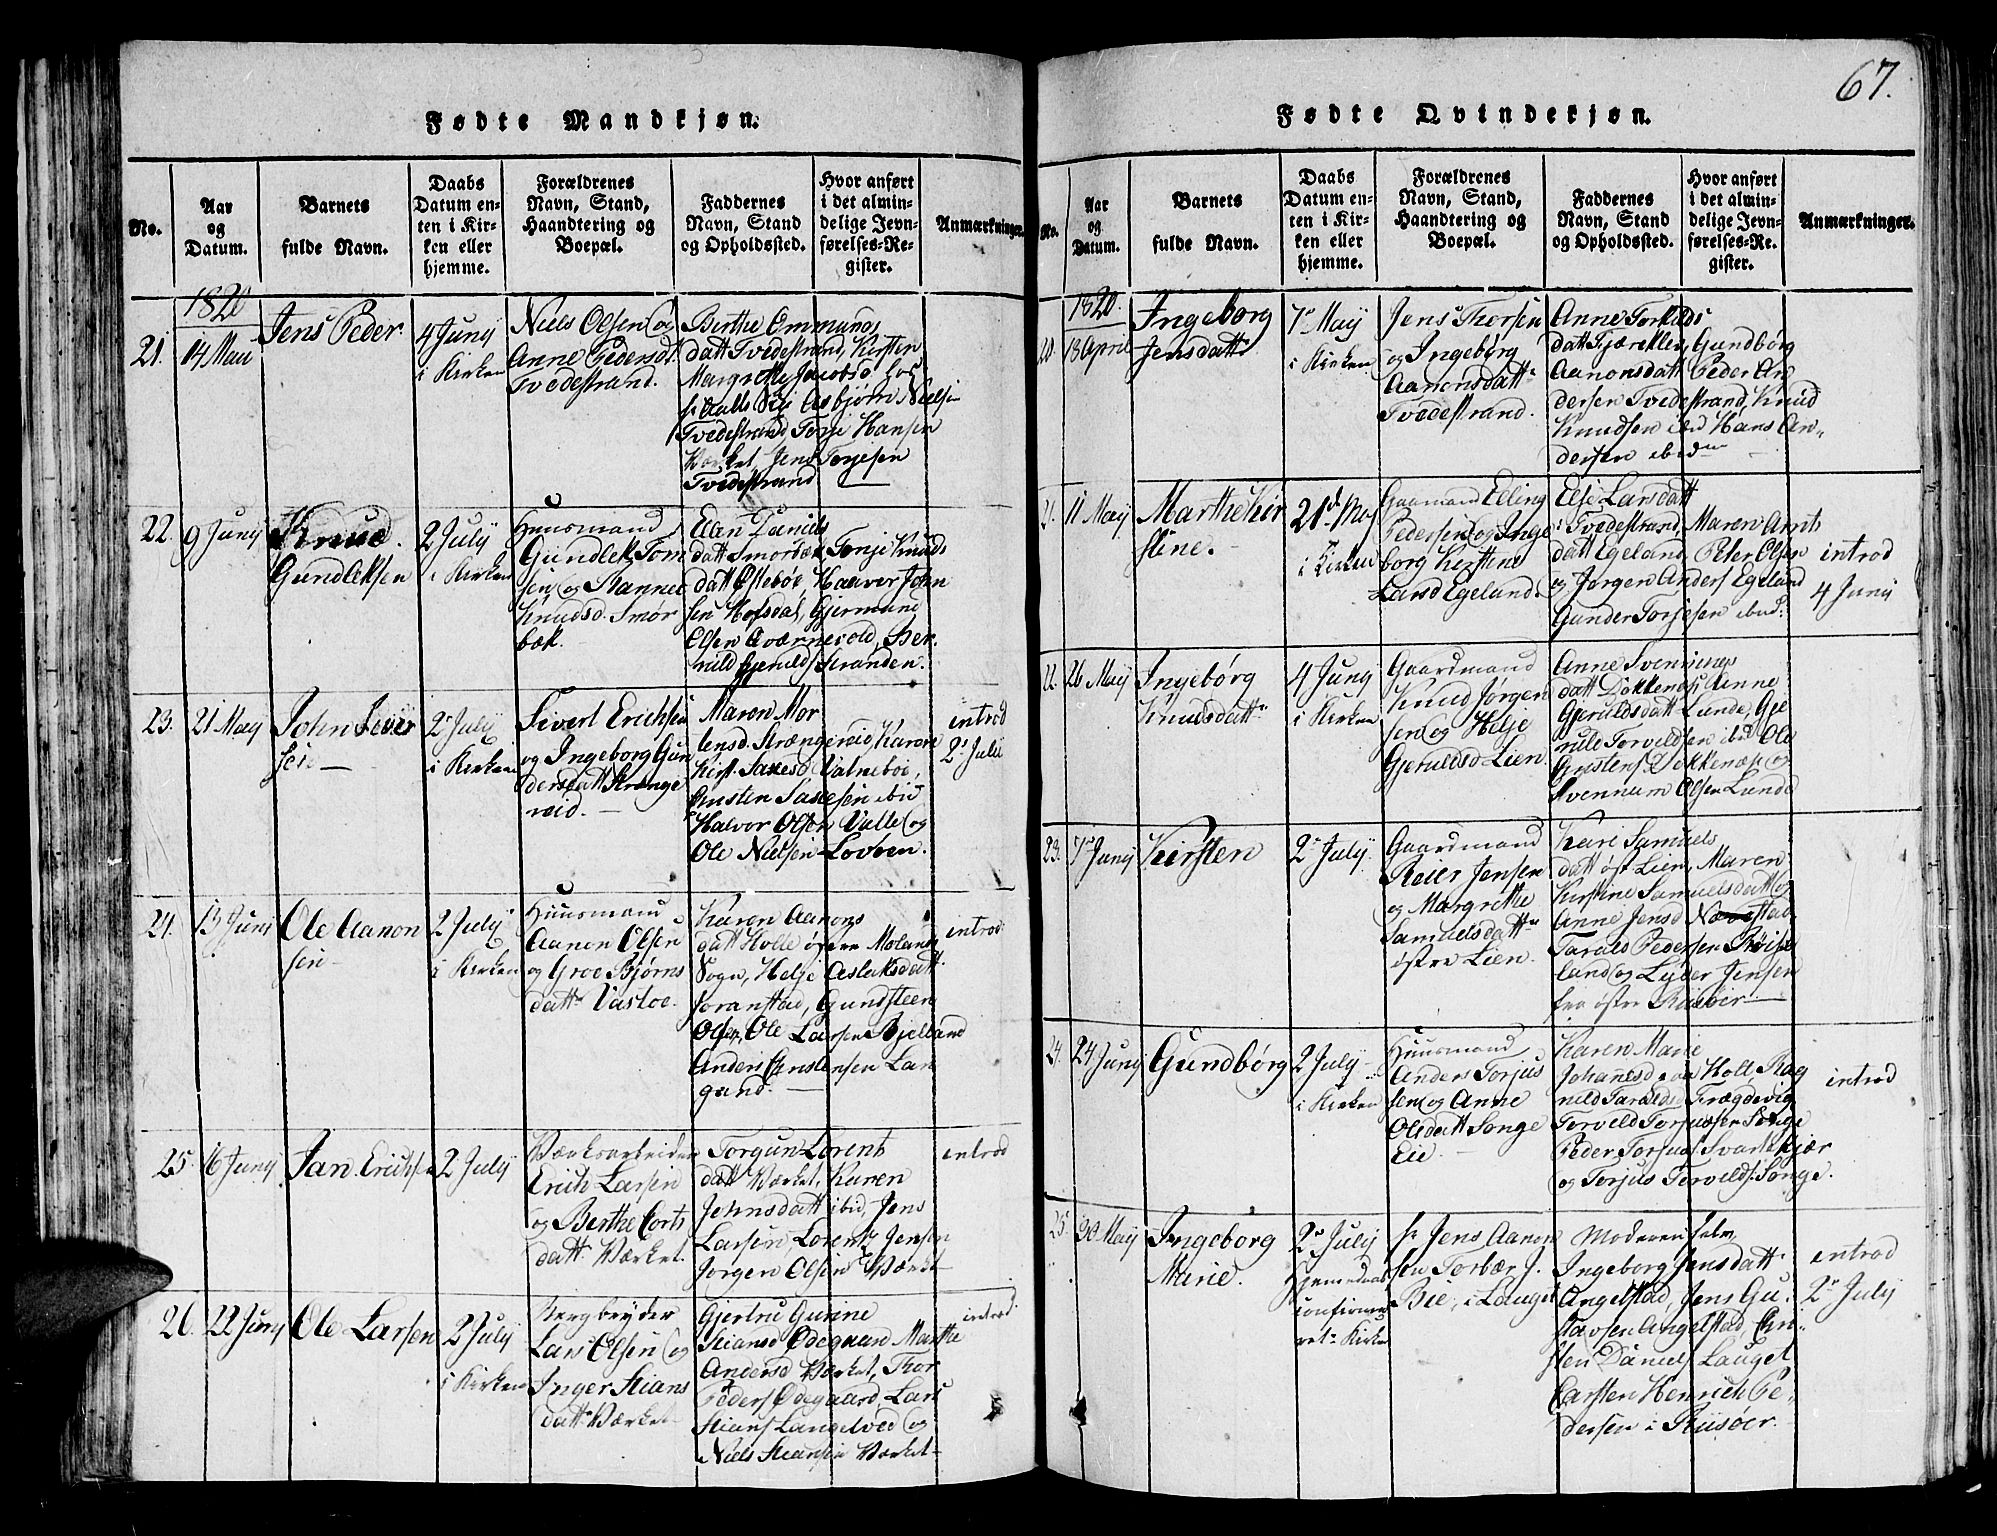 67.
Fødte Mandkjøn.
No.
Aar
og
Datum.
Barnets
fulde Navn.
Daabs
Datum en-
ten i Kir-
ken eller
hjemme.
Forældrenes
Navn, Stand,
Haandtering og
Boepæl.
Faddernes
Navn, Stand
og Opholdssted.
Hvor anført
i det almin-
delige Jevn-
førelses-Re-
gister.
Anmærkninger.
1820
21.
14 Maii
Jens Peder
4 Junij
i Kirken
Niels Olsen og
Anne Pedersd
Tvedestrand.
Berthe Emmunds
datt Tvedestrand, Kirsten
Margrethe Jacobsd hos
Asbjørn Nielsen
Tvedestrand Torje Hansen
Værket, Jens Torjesen
Tvedestrand
22.
9 Junij
Knud
Gundleksen
2 July
i Kirken
Huusmand
Gundlek Tom
sen og Stanner
Knudsd. Smør
bæk.
Elen Daniels
datt Smørbæk Tonje Knuds
datt Østebøe Haaver John
sen Hofsdal, Gjermund
Olsen Qværnevold, Ber
Stranden.
23.
21 Maij
John Siver
sen
2 July
i Kirken
Sivert Erichsen
og Ingeborg Gun
dersdatt Strænge
reid.
Maren Mor
tensd. Strængereid, Karen
Kirst. Saxesd. Valneboe,
Christen Saxesen ibid
Halvor Olsen Valle og
Ole Nielsen Lovoen.
introd
2 Julii
24.
13 Juni
Ole Aanon
sen
2 July
i Kirken
Huusmand
Aanon Olsen
og Groe Bjørns
datt Vastøe.
Karen Aanons
datt Holle østre Molands
Sogn, Helje Aslaksdatt
Joranstad, Gundsteen
Olsen, Ole Larsen Bjelland
Anders Christensen Lan
gund.
introd.
25
16 Junij
Jan Erichsen
2 July
Værksarbeider
Erich Larsen
og Berthe Corts
datt Værket.
Torgun Lorents
datt Værket, Karen
Johnsdatt ibid, Jens
Larsen, Lorentz Jensen
Jørgen Olsen Værket
introd
26
22 Junij
Ole Larsen
2 July
i Kirken
Bergbryder
Lars Olsen og
Inger Stians
datt Værket
Gjertru Gurine
Stiansd Ødegaard Marthe
Andersd Værket, Thor
Peders Ødegaard, Lars
Stians Langelved og
Niels Stiansen Værket
introd.
Fødte Qvindekjøn.
No.
Aar
og
Datum.
Barnets
fulde Navn.
Daabs
Datum en-
ten i Kir-
ken eller
hjemme.
Forældrenes
Navn, Stand,
Haandtering og
Boepæl.
Faddernes
Navn, Stand
og Opholdssted.
Hvor anført
i det almin-
delige Jevn-
førelses-Re-
gister.
Anmærkninger.
1820
20.
13 April
Ingeborg
Jensdatt
7 Maij
i Kirken
Jens Thorsen
og Ingebørg
Aanonsdatt
Tvedestrand.
Anne Torkilds
datt Fjærekilen, Gundbørg
Aanonsdatt Peder An
dersen Tvedestrand, Knud
Knudsen ibd Hans An-
dersen ibid
21.
11 Maij
Marthe Kir
stine.
21 Maj
i Kirken
Gaamand Elling
Pedersen og Inge
borg Kirstine
Larsd Egeland.
Else Larsdatt
i Tvedestrand, Maren Arnts
datt Egeland, Peter Olsen
og Jørgen Anders Egeland
Gunder Torjesen ibid.
introd
4 Junij
22.
26 Maij
Ingebørg
Knudsdatt
4 Junij
i Kirken
Gaardmand
Knud Jørgen
sen og Helje
Gjeruldsd Lien.
Anne Svennings
datt Dokkenæs, Anne
Gjeruldsdatt Lunde, Gje
ruld Torveldsen ibid Ole
Christens Dokkenæs og
Svennum Olsen Lunde
23.
7 Junij
Kirsten
2 July
Gaardmand
Reier Jensen
og Margrethe
Samuelsdatt
østre Lien.
Kari Samuels
datt øst Lien, Maren
Kirstine Samuelsdatt og
Anne Jensd Navestad
Tarald Pedersen Røise
land og Lyder Jensen
fra østre Riisøer.
24.
24 Junij
Gundbørg
2 July
i Kirken
Huusmand
Anders Torjus
sen og Anne
Olsdatt Songe
Eie.
Karen Marie
Johannesd Holt Rag
nild Taraldsd Trægdevig
Torveld Torjussen Songe
Peder Torjus Svartekjær
og Torjus Torvelds. Songe.
introd
25.
30 Maij
Ingeborg
Marie.
2 July
Hjemedaab
confirme
ret i Kirke
Jens Aanon
sen Torbær J.
Bie, i Lauget
Moderen selv,
Ingeborg Jensdatt
Angelstad, Jens Gu-
stavsen Angelstad, Chri
sten Daniels Lauget
Carsten Henrich Pe-
dersen i Riisøer.
introd
2 July